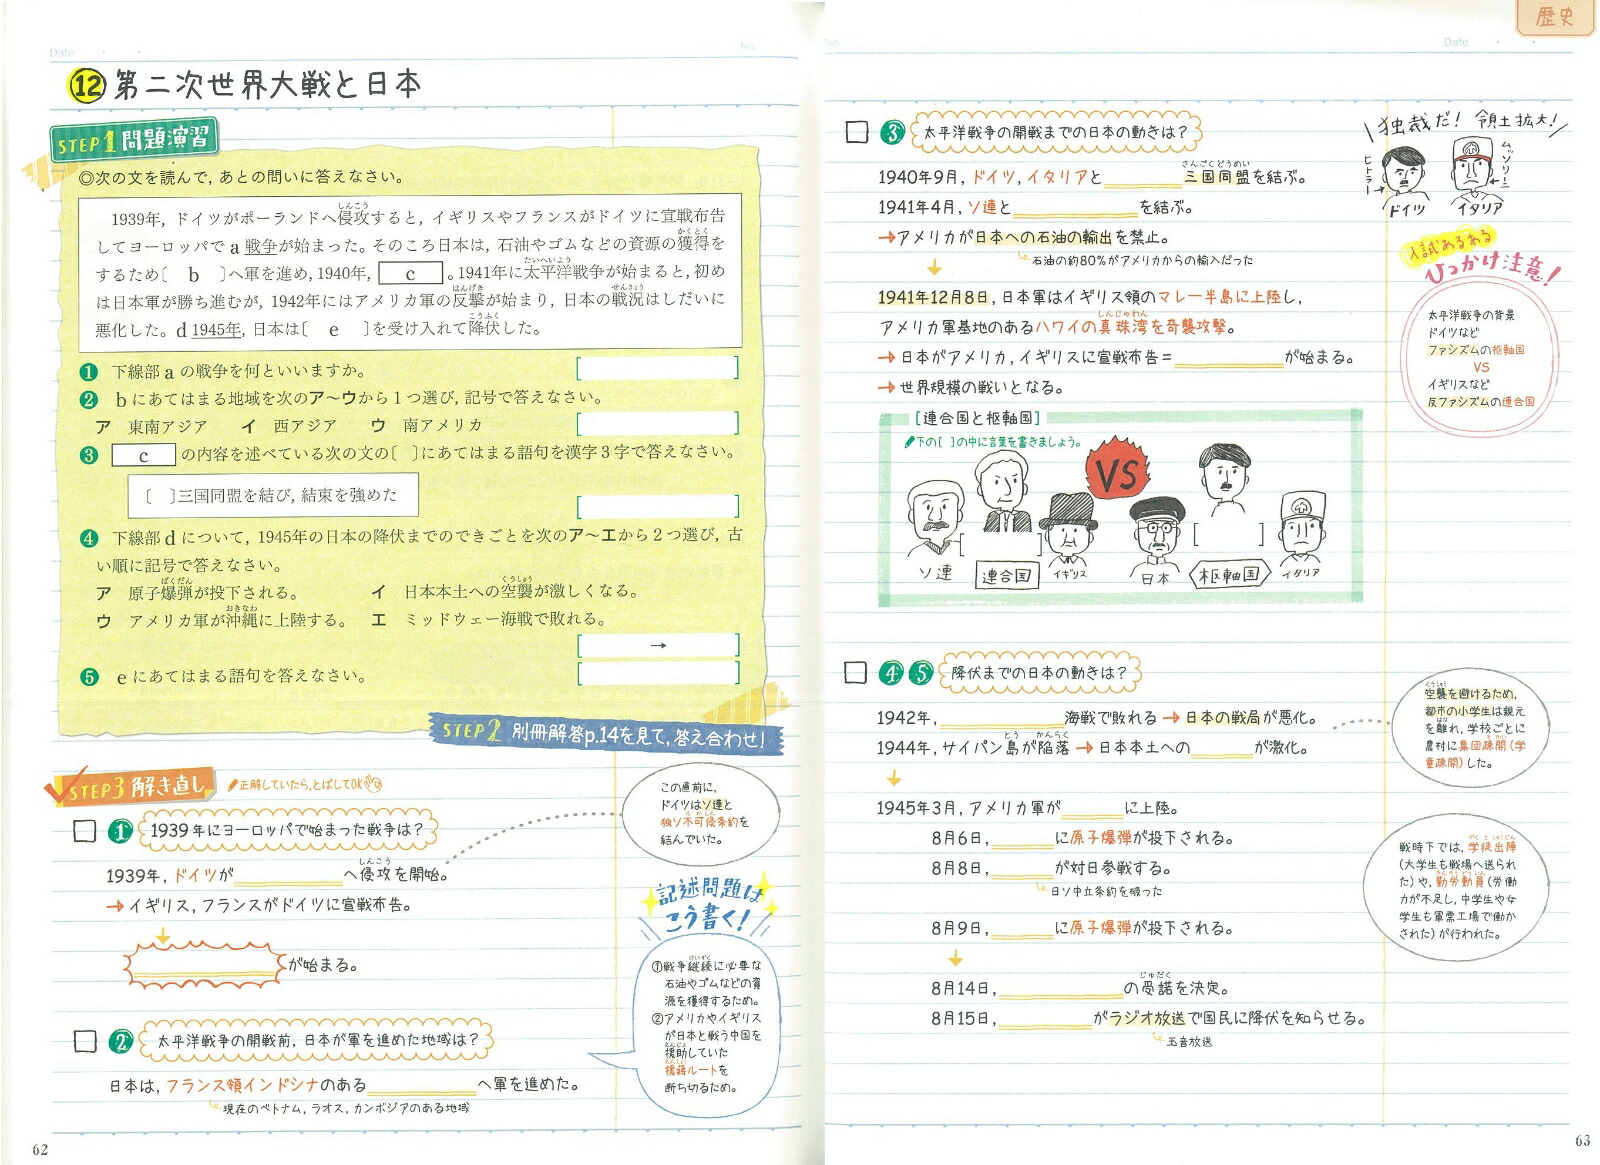 Date
No.
⑫第二次世界大戦と日本
STEP1 問題演習
◎次の文を読んで，あとの問いに答えなさい。
1939年，ドイツがポーランドへ侵攻すると，イギリスやフランスがドイツに宣戦布告
してヨーロッパでa戦争が始まった。そのころ日本は，石油やゴムなどの資源の獲得を
するため〔 b 〕へ軍を進め，1940年， c 。1941年に太平洋戦争が始まると，初め
は日本軍が勝ち進むが，1942年にはアメリカ軍の反撃が始まり，日本の戦況はしだいに
悪化した。d 1945年，日本は〔 e 〕を受け入れて降伏した。
❶ 下線部aの戦争を何といいますか。
❷ bにあてはまる地域を次のア〜ウから1つ選び，記号で答えなさい。
ア 東南アジア イ 西アジア ウ 南アメリカ
❸ c の内容を述べている次の文の〔 〕にあてはまる語句を漢字3字で答えなさい。
〔 〕三国同盟を結び，結束を強めた
❹ 下線部dについて，1945年の日本の降伏までのできごとを次のア〜エから2つ選び，古
い順に記号で答えなさい。
ア 原子爆弾が投下される。 イ 日本本土への空襲が激しくなる。
ウ アメリカ軍が沖縄に上陸する。 エ ミッドウェー海戦で敗れる。
→
❺ eにあてはまる語句を答えなさい。
STEP2 別冊解答p.14を見て，答え合わせ！
STEP3 解き直し
正解していたら，とばしてOK
❶ 1939年にヨーロッパで始まった戦争は？
1939年，ドイツが へ侵攻を開始。
→イギリス，フランスがドイツに宣戦布告。
が始まる。
この直前に，
ドイツはソ連と
独ソ不可侵条約を
結んでいた。
❷ 太平洋戦争の開戦前，日本が軍を進めた地域は？
日本は，フランス領インドシナのある へ軍を進めた。
現在のベトナム，ラオス，カンボジアのある地域
記述問題は
こう書く！
①戦争継続に必要な
石油やゴムなどの資
源を獲得するため。
②アメリカやイギリス
が日本と戦う中国を
援助していた
援蔣ルートを
断ち切るため。
62
No.
Date
歴史
❸ 太平洋戦争の開戦までの日本の動きは？
1940年9月，ドイツ，イタリアと 三国同盟を結ぶ。
1941年4月，ソ連と を結ぶ。
→アメリカが日本への石油の輸出を禁止。
石油の約80%がアメリカからの輸入だった
1941年12月8日，日本軍はイギリス領のマレー半島に上陸し，
アメリカ軍基地のあるハワイの真珠湾を奇襲攻撃。
→日本がアメリカ，イギリスに宣戦布告＝ が始まる。
→世界規模の戦いとなる。
独裁だ！ 領土拡大！
ヒトラー
ムッソリーニ
ドイツ
イタリア
入試あるある
ひっかけ注意！
太平洋戦争の背景
ドイツなど
ファシズムの枢軸国
VS
イギリスなど
反ファシズムの連合国
［連合国と枢軸国］
下の［ ］の中に言葉を書きましょう。
VS
ソ連
連合国
イギリス
日本
枢軸国
イタリア
❹❺ 降伏までの日本の動きは？
1942年， 海戦で敗れる→日本の戦局が悪化。
1944年，サイパン島が陥落→日本本土への が激化。
1945年3月，アメリカ軍が に上陸。
8月6日， に原子爆弾が投下される。
8月8日， が対日参戦する。
日ソ中立条約を破った
8月9日， に原子爆弾が投下される。
8月14日， の受諾を決定。
8月15日， がラジオ放送で国民に降伏を知らせる。
玉音放送
空襲を避けるため，
都市の小学生は親元
を離れ，学校ごとに
農村に集団疎開（学
童疎開）した。
戦時下では，学徒出陣
（大学生も戦場へ送られ
た）や，勤労動員（労働
力が不足し，中学生や女
学生も軍需工場で働か
された）が行われた。
63